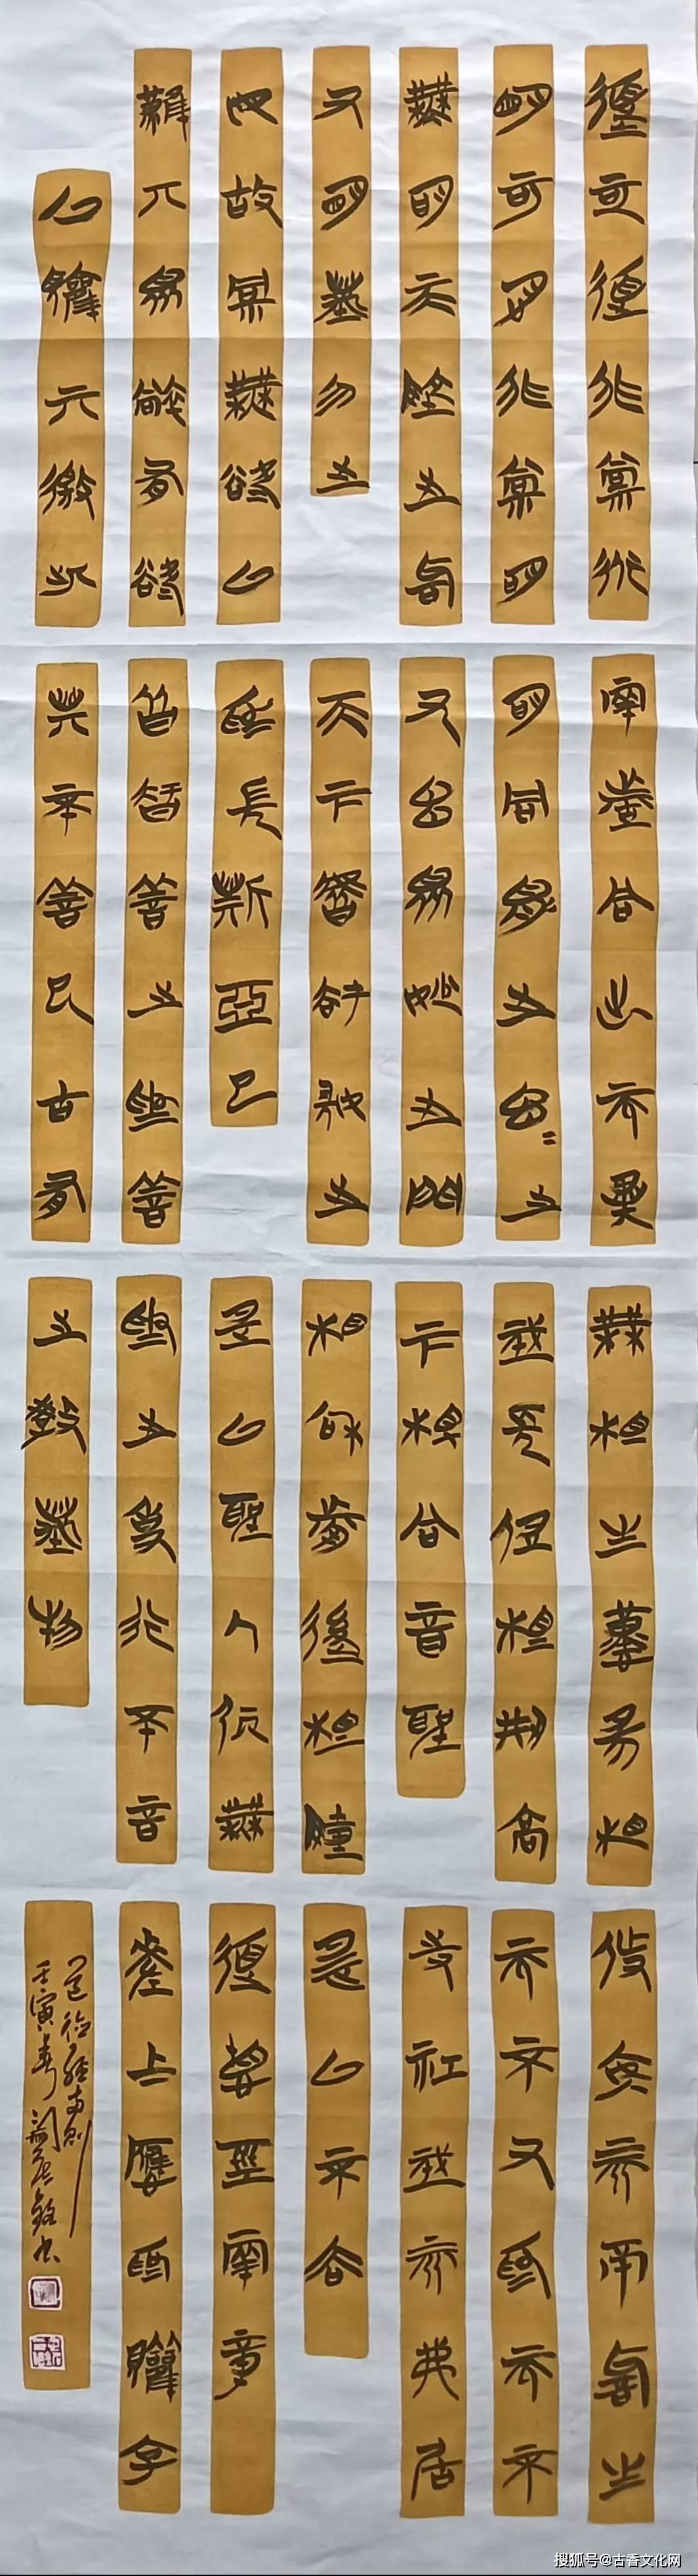 道可道非常道
名可名非常名
無名天地之始
有名萬物之
母故常無欲以
觀其妙常有欲
以觀其徼此
兩者同出而異
名同謂之玄=之
又玄眾妙之門
天下皆知美之
為美斯惡已
皆知善之為善
其不善已故有
無相生難易相
成長短相形高
下相盈音聲
相和前後相隨
是以聖人居無
為之事行不言
之教萬物
作焉而不辭生
而不有為而不
恃功成而弗居
是以不去
道德經兩章
道德經两則
壬寅春
搜狐号@古香文化网